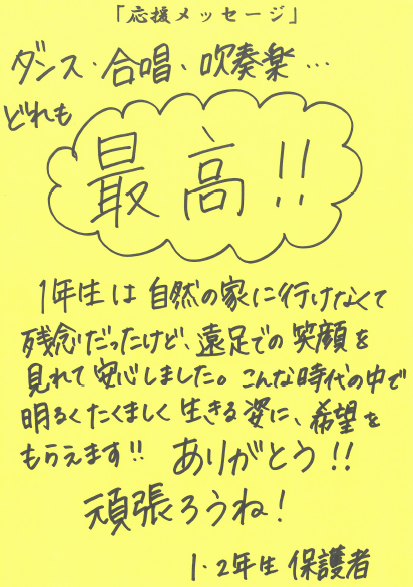 「応援メッセージ」
ダンス、合唱、吹奏楽…
どれも
最高!!
1年生は自然の家に行けなくて
残念だったけど、遠足での笑顔を
見れて安心しました。こんな時代の中で
明るくたくましく生きる姿に、希望を
もらえます!! ありがとう!!
頑張ろうね!
1・2年生 保護者